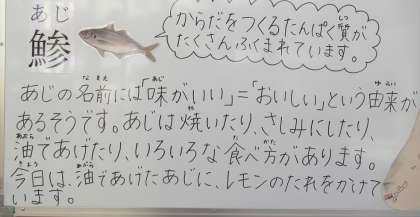 あじ
鯵
からだをつくるたんぱく質が
たくさんふくまれています。
あじの名前には「味がいい」=「おいしい」という由来が
あるそうです。あじは焼いたり、さしみにしたり
油であげたり、いろいろな食べ方があります。
今日は、油であげたあじに、レモンのたれをかけて
います。